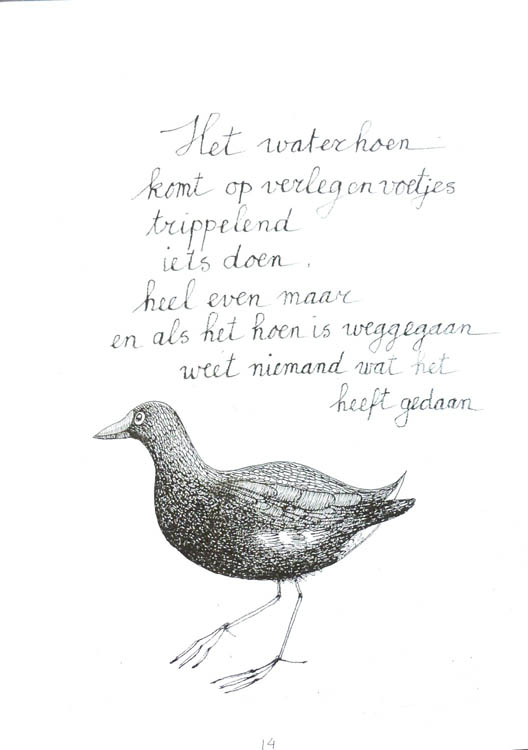 Het waterhoen
komt op verlegen voetjes
trippelend
iets doen.
heel even maar
en als het hoen is weggegaan
weet niemand wat het
heeft gedaan
14